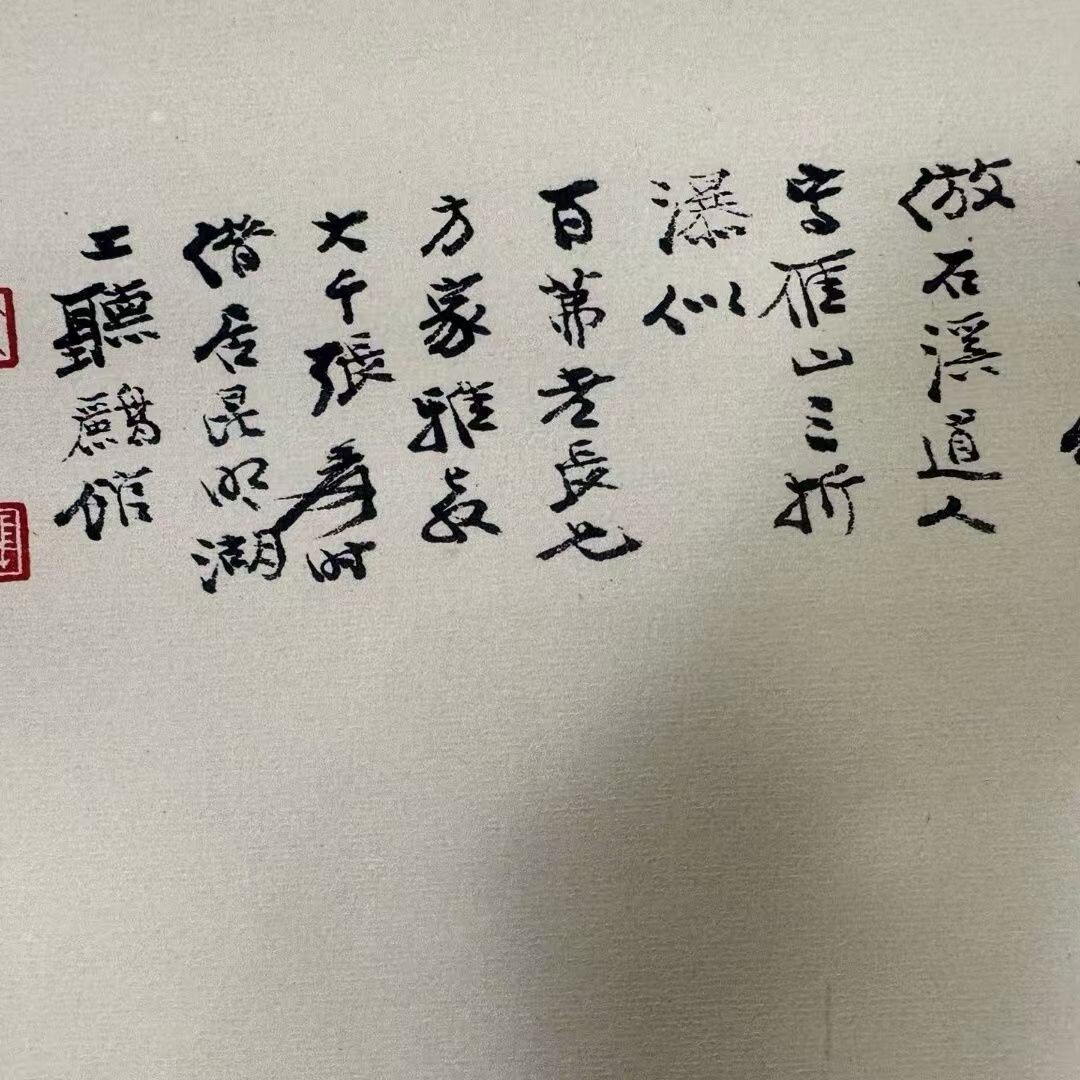 倣石溪道人
写雁山三折
瀑似
百茀老長兄
方家雅教
大千張爰时
借居昆明湖
上聽鸝館